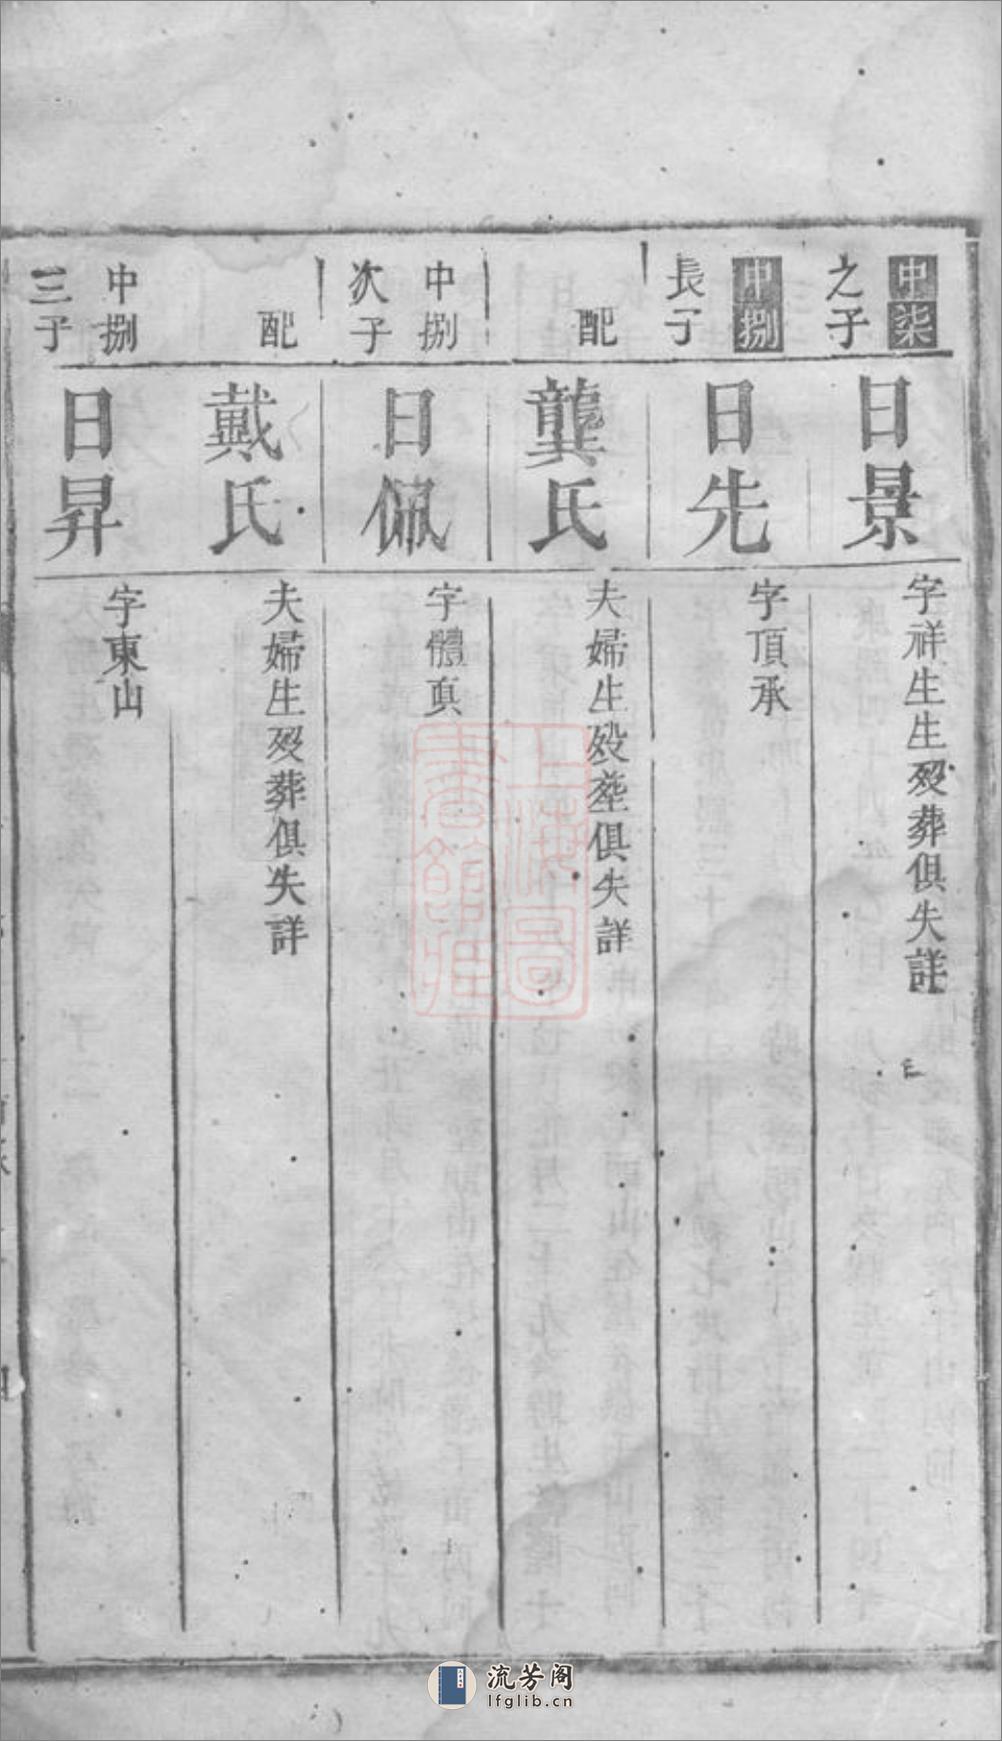 中柒之子
日景
字祥生生歿葬俱失詳
中捌長子
日先
字頂承
配
龔氏
夫婦生歿塟俱失詳
中捌次子
日佩
字體真
配
戴氏
夫婦生歿葬俱失詳
中捌三子
日昇
字東山
上海圖書館藏
流芳阁
lfglib.cn